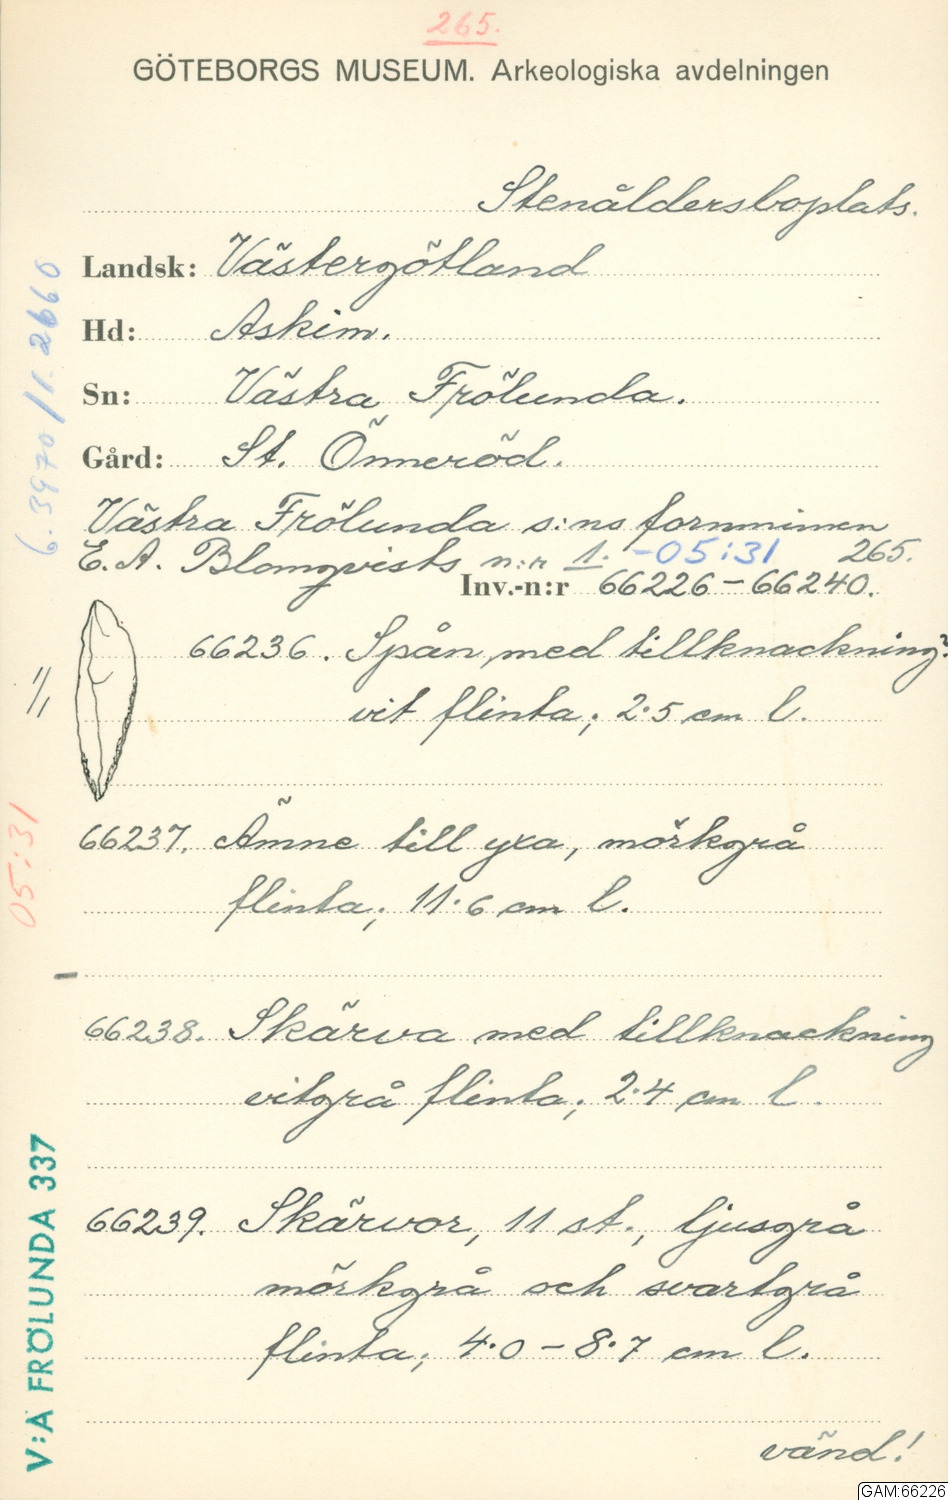 265.
GÖTEBORGS MUSEUM. Arkeologiska avdelningen
Stenåldersboplats.
Landsk: Västergötland
Hd: Askim.
Sn: Västra Frölunda.
Gård: St. Önneröd.
Västra Frölunda s:ns fornminnen
E. A. Blomqvists n:r 1. -05:31 265.
Inv.-n:r 66226-66240.
66236. Spån med tillknackning?
vit flinta; 2.5 cm l.
1/1
66237. Ämne till yxa, mörkgrå
flinta; 11.6 cm l.
66238. Skärva med tillknackning
vitgrå flinta; 2.4 cm l.
66239. Skärvor, 11 st., ljusgrå
mörkgrå och svartgrå
flinta; 4.0 - 8.7 cm l.
vänd!
6.3970/1.2660
05:31
V:A FRÖLUNDA 337
GAM:66226